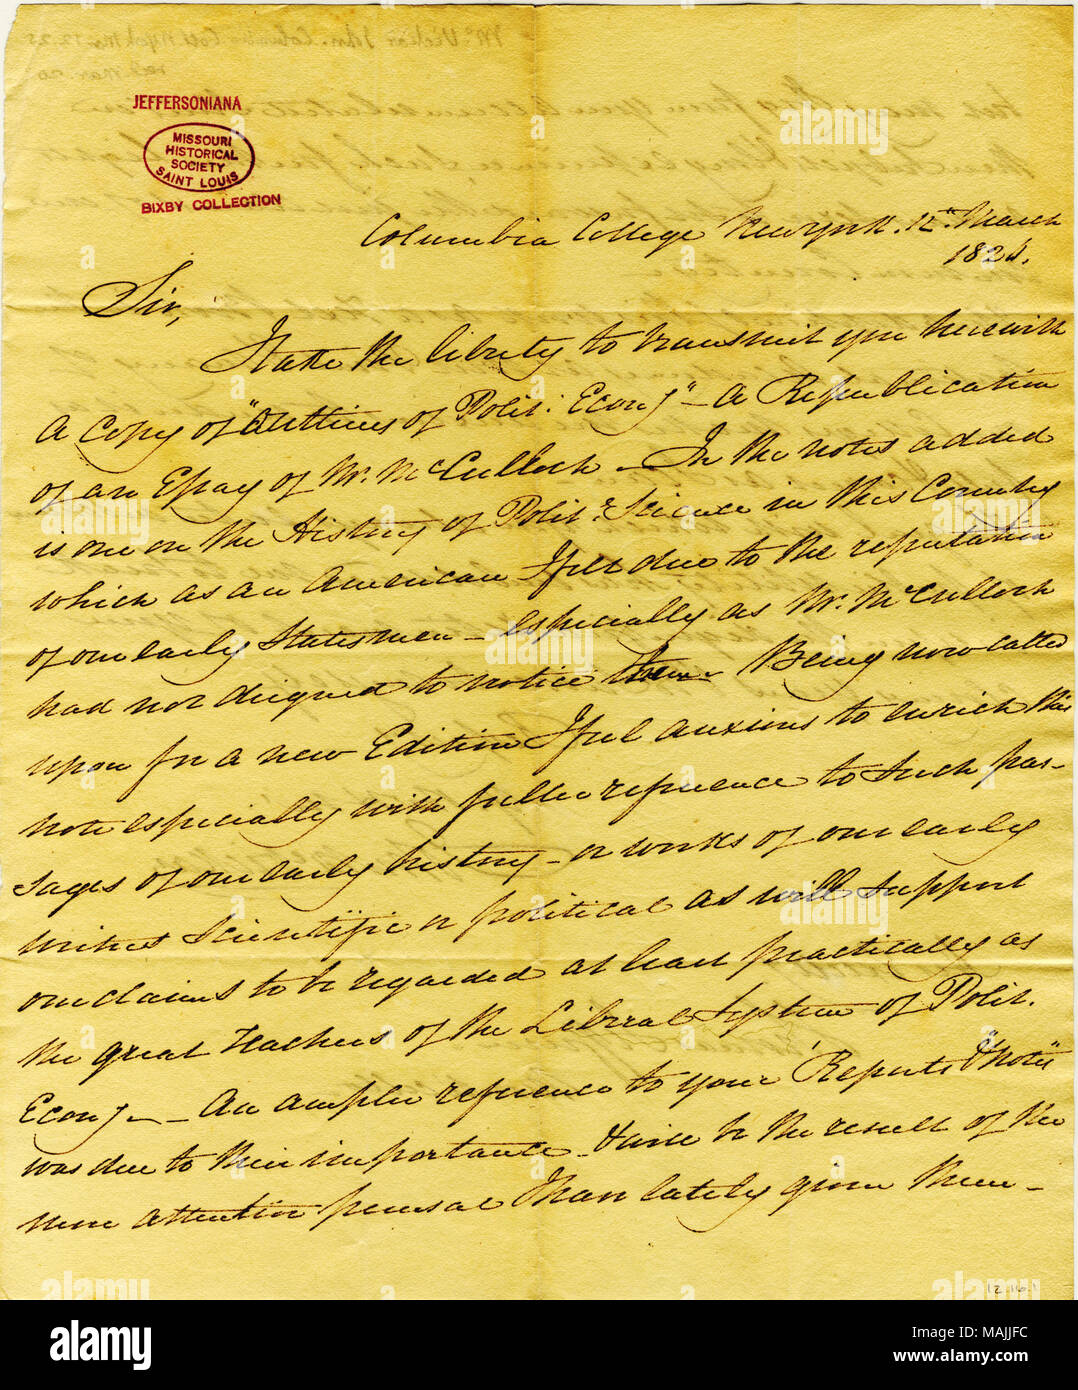 JEFFERSONIANA
MISSOURI
HISTORICAL
SOCIETY
SAINT LOUIS
BIXBY COLLECTION
Columbia College New York. 12th March
1826.
Sir,
I take the liberty to transmit you herewith
a copy of "Outlines of Polit: Econy" – a Republication
of an Essay of Mr. McCulloch – In the notes added
is one on the History of Polit: Science in this Country
which as an American I felt due to the reputation
of our early Statesmen – especially as Mr. McCulloch
had not deigned to notice them. Being now called
upon for a new Edition I feel anxious to enrich this
note especially with fuller reference to such pas-
sages of our early history – or works of our early
writers Scientific or political as will support
our claims to be regarded at least practically as
the great teachers of the Liberal System of Polit.
Econy – An ampler reference to your 'Reports & "Notes"
was due to their importance – & will be the result of the
more attentive perusal I have lately given them –
12.16.1
alamy
Image ID: MAJJFC
www.alamy.com